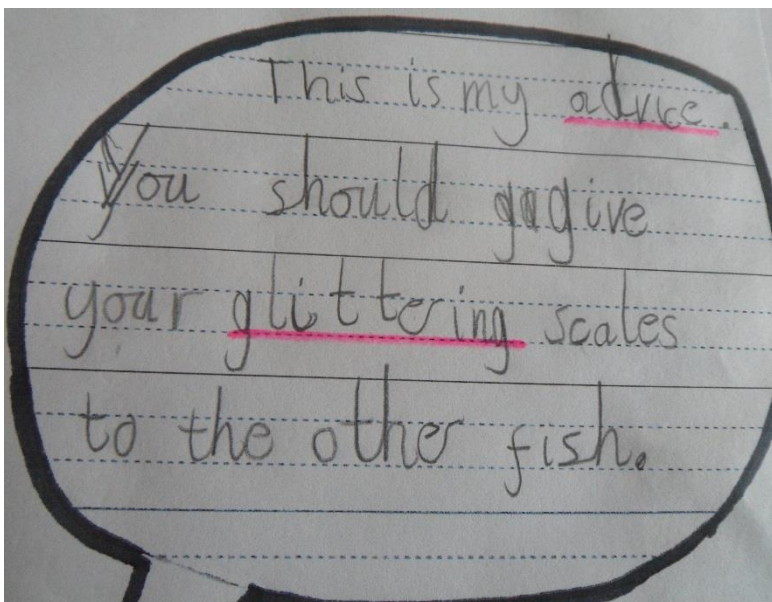 This is my advice.
You should give
your glittering scales
to the other fish.